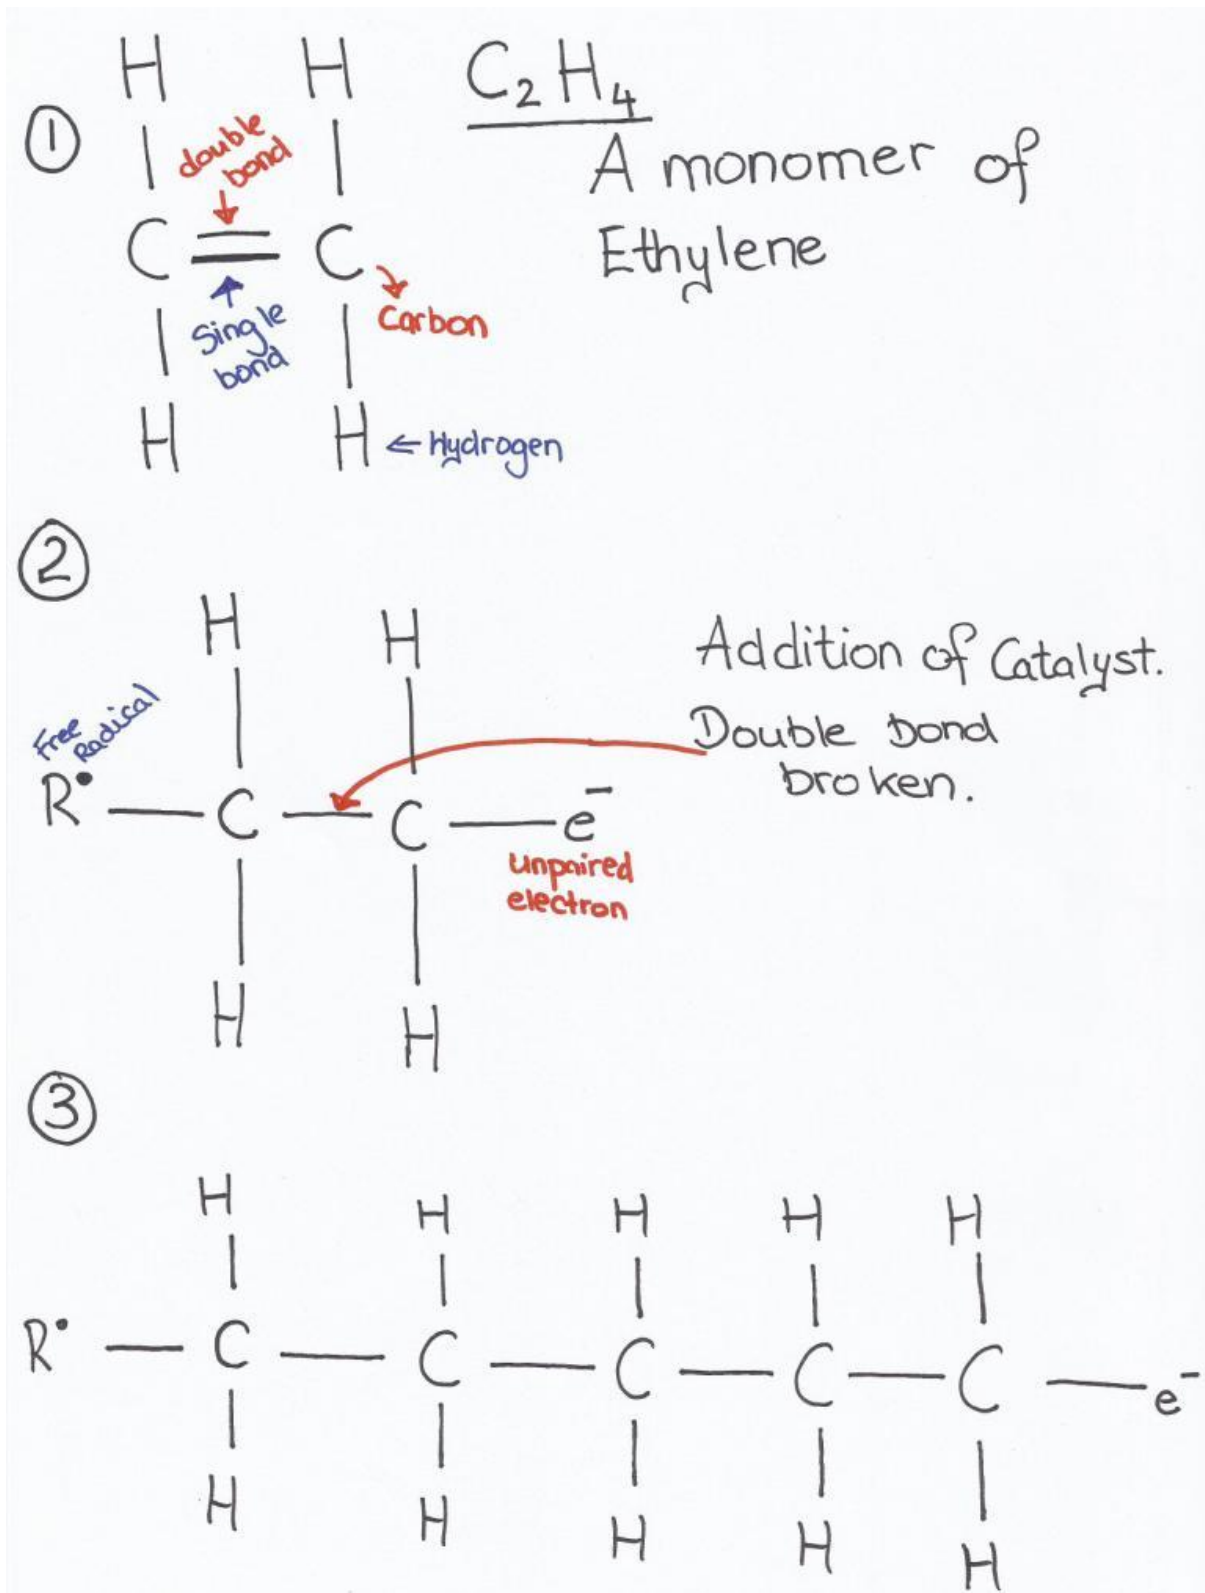 ①
H H
double
bond
C = C
Single
bond
Carbon
H H
Hydrogen
C₂H₄
A monomer of
Ethylene
②
H H
Free
Radical
R• — C — C — e⁻
unpaired
electron
H H
Addition of Catalyst.
Double bond
broken.
③
H H H H H
R• — C — C — C — C — C — e⁻
H H H H H